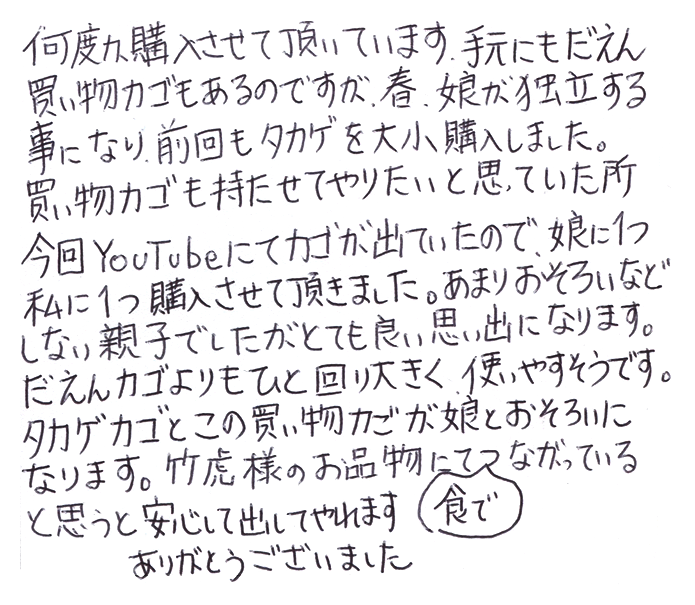 何度か購入させて頂いています、手元にもだえん
買い物カゴもあるのですが、春、娘が独立する
事になり、前回もタカゲを大小購入しました。
買い物カゴも持たせてやりたいと思っていた所
今回YouTubeにてカゴが出ていたので、娘に1つ
私に1つ購入させて頂きました。あまりおそろいなど
しない親子でしたがとても良い思い出になります。
だえんカゴよりもひと回り大きく、使いやすそうです。
タカゲカゴとこの買い物カごが娘とおそろいに
なります。竹虎様のお品物にてつながっている
と思うと安心して出してやれます 食で
ありがとうございました